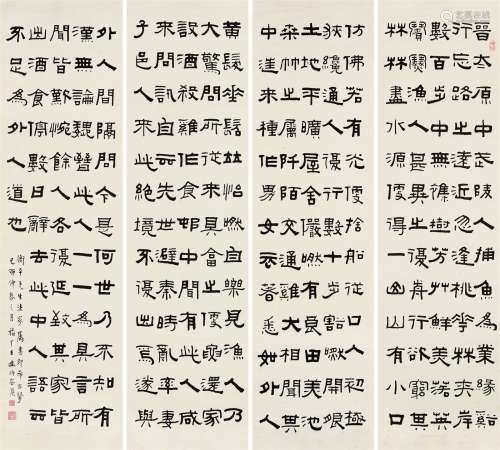 晉太原中武陵人捕魚為業緣谿
行忘路之遠近忽逢桃華林夾岸
數百步中無雜樹芳草鮮美落英
繽紛漁人甚異之復前行欲窮其
林林盡水源便得一山山有小口
仿佛若有光便捨船從口入初極
狹纔通人復行數十步豁然開朗
土地平曠屋舍儼然有良田美池
桑竹之屬阡陌交通雞犬相聞其
中往來種作男女衣著悉如外人
黃髮垂髫竝怡然自樂見漁人乃
大驚問所從來具答之便要還家
設酒殺雞作食邨中聞有此人咸
來問訊自云先世避秦時亂率妻
子邑人來此絕境不復出焉遂與
外人間隔問今是何世乃不知有
漢無論魏晉此人一一為具言所
聞皆歎惋餘人各復延至其家皆
出酒食停數日辭去此中人語云
不足為外人道也
先生法家屬書即希